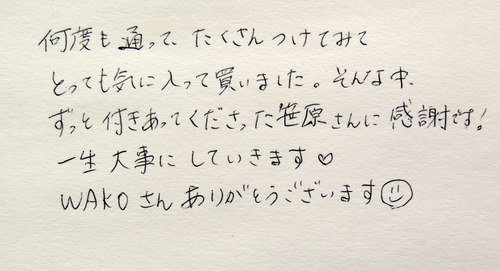 何度も通って、たくさんつけてみて
とっても気に入って買いました。そんな中、
ずっと付きあってくださった笹原さんに感謝です!
一生大事にしていきます♡
WAKOさんありがとうございます☺